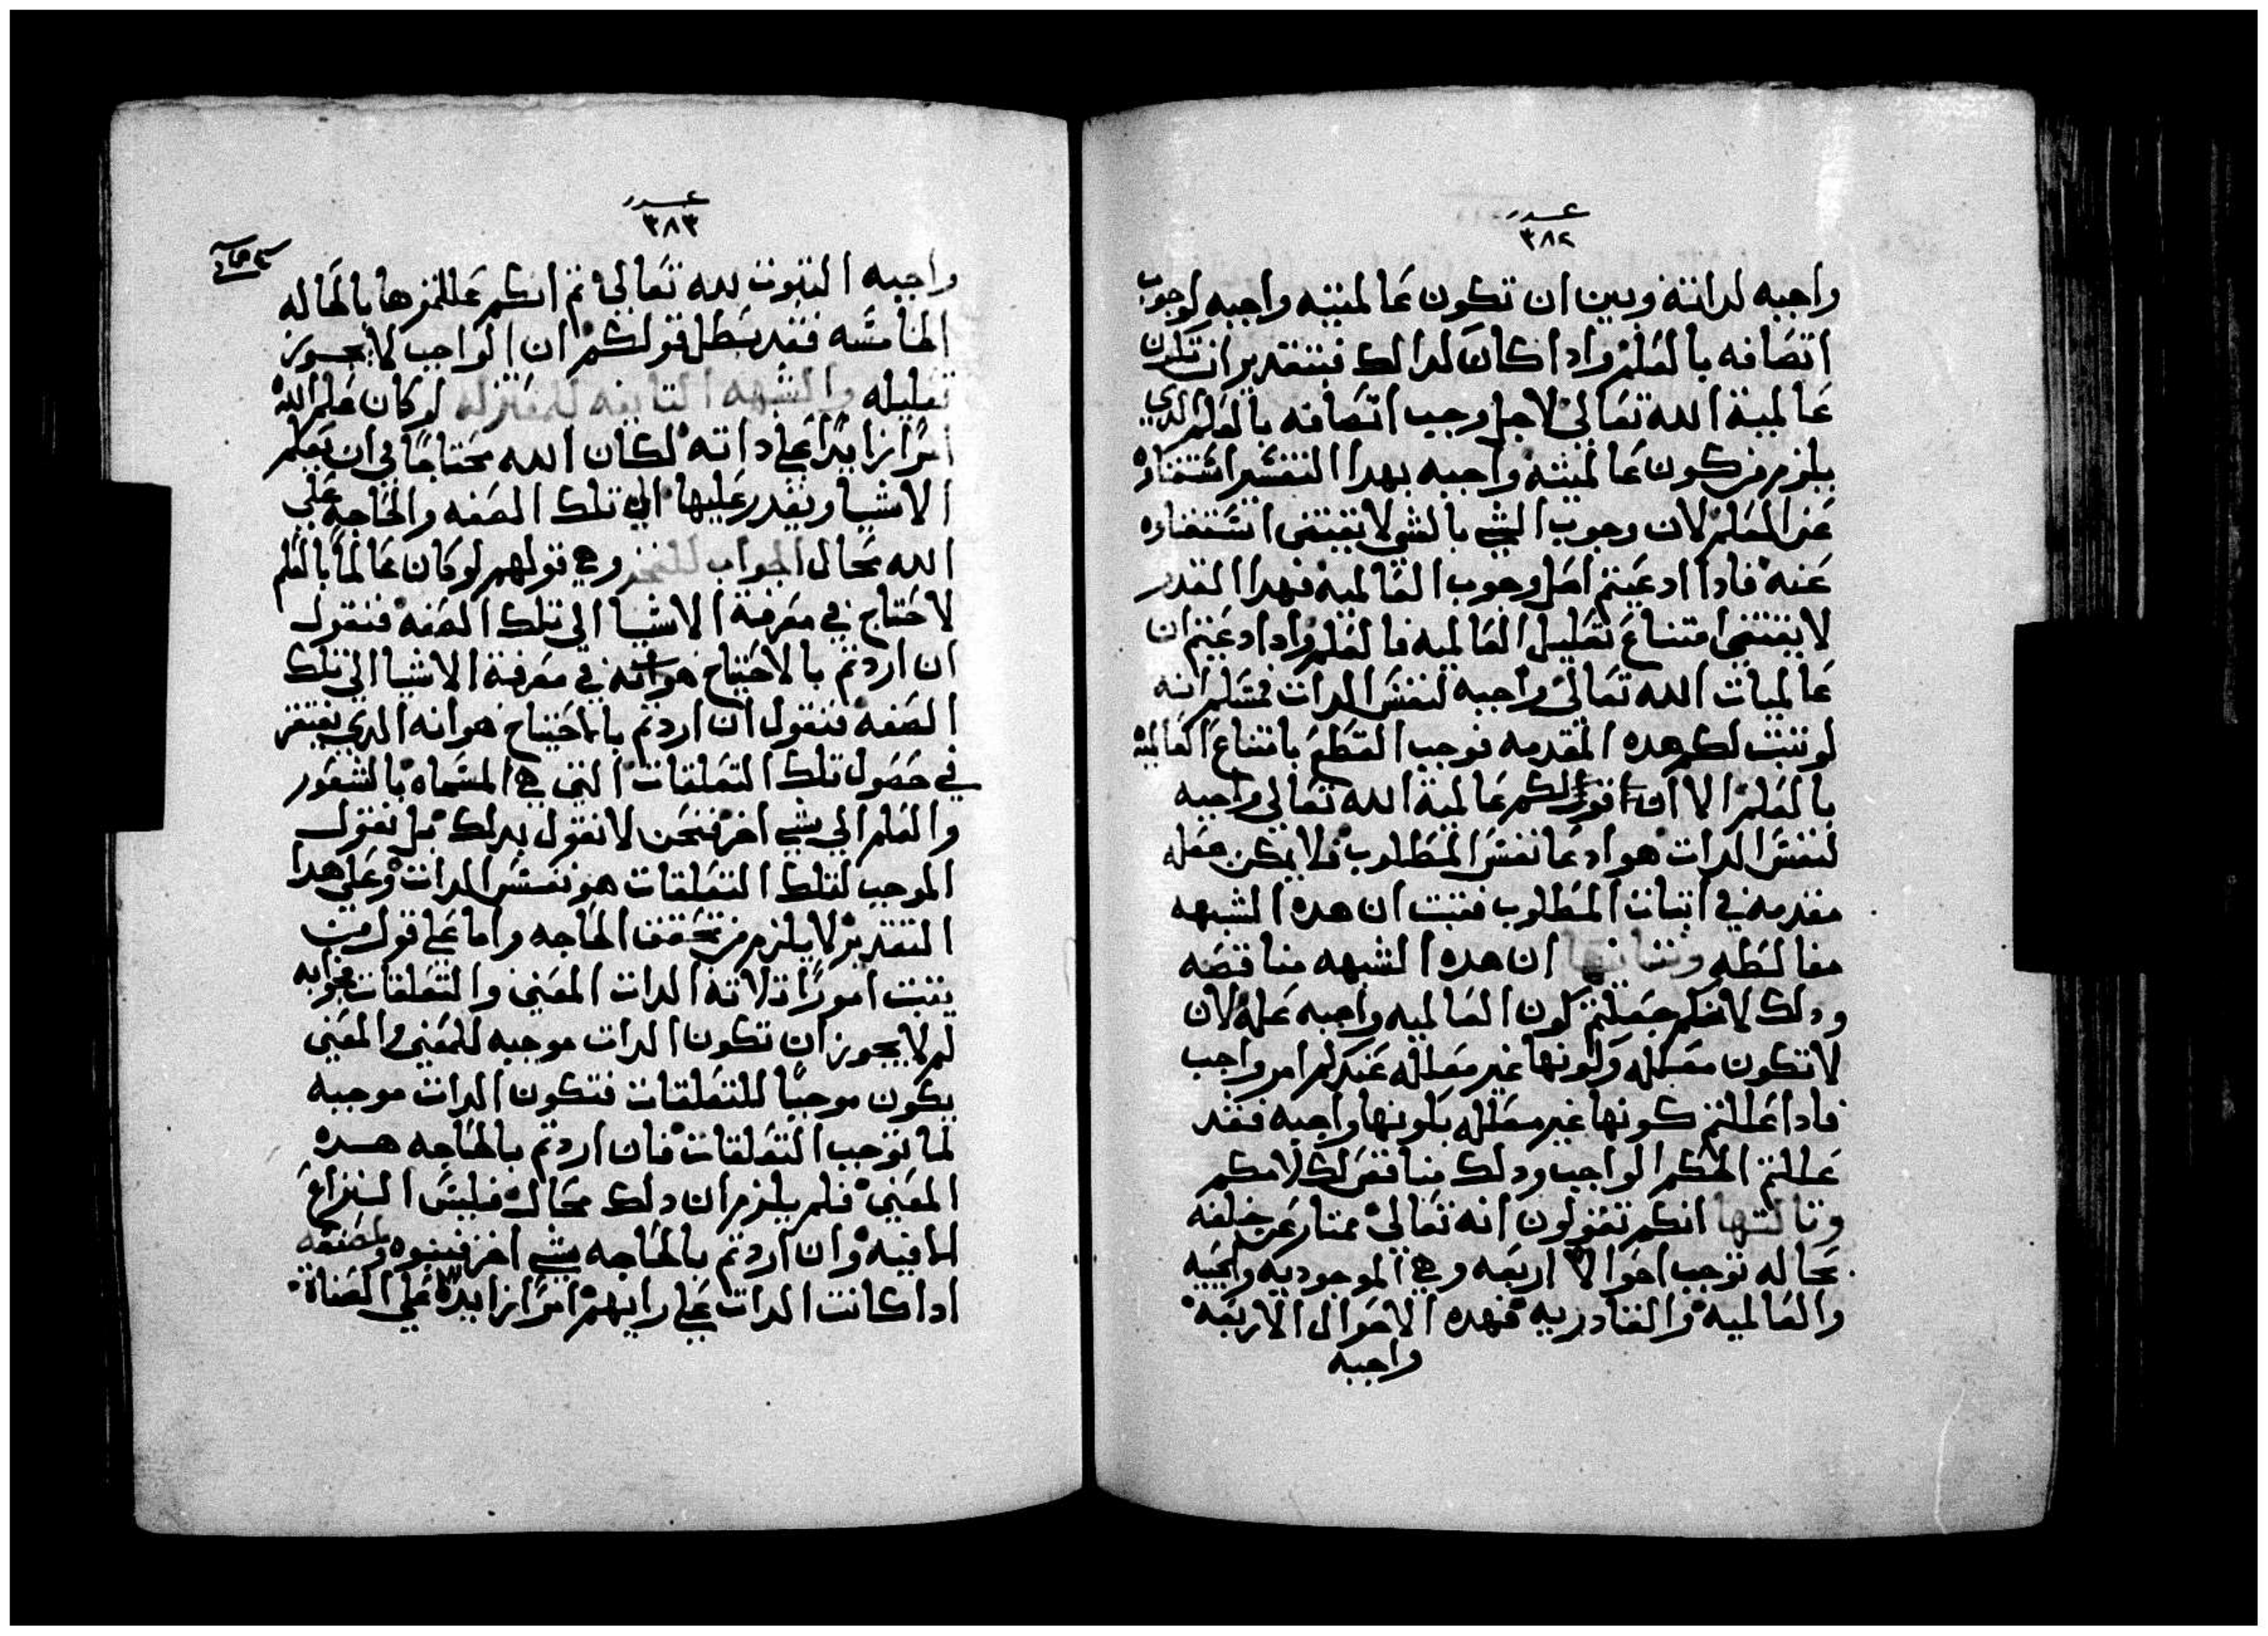 عدد
٣٨٢
واجبه لداته وبين ان تكون عالميته واجبه لوجوب
اتصافه بالعلم وادا كان كدالك فبتقدير ان تكون
عالمية الله تعالي لاجل وجب اتصافه بالعلم الدي
يلزم من كون عالميته واجبه بهدا التفسير استغناوه
عن العلم لان وجوب الشي بالشي لا يقتضى استغناوه
عنه فادا ادعيتم اصل وجوب العالميه فهدا القدر
لا يقتضي امتناع تعليل العالميه فالعلم وادا ادعيتم ان
عالميات الله تعالي واجبه لنفس الدات فمسلم انه
لو تبت لكم هده المقدمه فوجب القطع بامتناع العالميه
بالعلم الا ان قولكم عالمية الله تعالي واجبه
لنفس الدات هو ادعا نفس المطلوب فلا يمكن جعله
مقدمه في اتبات المطلوب فتبت ان هده الشبهه
مغالطه وتانيها ان هده الشبهه مناقضه
ودلك لانكم جعلتم كون العالميه واجبه عله لان
لا تكون معلله وكونها غير معلله عندكم امر واجب
فادا عللتم كونها غير معلله بكونها واجبه فقد
عللتم الحكم الواجب ودلك مناقض لكلامكم
وتالتها انكم تقولون انه تعالي ممتاز عن خلقه
بحاله توجب احوالا اربعه وهي الموجوديه والحييه
والعالميه والقادريه فهده الاحوال الاربعه
واجبه
عدد
٣٨٣
واجبه التبوت لله تعالي تم انكم عللتموها بالحاله
الخامسه فقد بطل قولكم ان الواجب لا يجوز
تعليله والشبهه التانيه للمعتزله لو كان علم الله
امرًا زايدًا علي داته لكان الله محتاجًا في ان يعلم
الاشيا ويقدر عليها الي تلك الصفه والحاجه علي
الله محال الجواب وهي قولهم لو كان عالمًا بالعلم
لاحتاج في معرفة الاشيا الي تلك الصفه فنقول
ان اردتم بالاحتياج هو انه في معرفة الاشيا الي تلك
الصفه فنقول ان اردتم بالاحتياج هو انه الدي يفتقر
في حصول تلك التعلقات التي هي المسماه بالشعور
والعلم الي شي اخر فنحن لا نقول بدلك بل نقول
الموجب لتلك التعلقات هو نفس الدات وعلي هدا
التقدير لا يلزم من تحقق الحاجه واما علي قول من
يتبت امورًا تلاته الدات المعني والتعلقات فجوابه
لم لا يجوز ان تكون الدات موجبه للمعني والمعني
يكون موجبًا للتعلقات فتكون الدات موجبه
لما توجب التعلقات فان اردتم بالحاجه هده
المعني فلم يلزم ان دلك محال فليس النزاع
الا فيه وان اردتم بالحاجه شي اخر فبينوه
ادا كانت الدات علي رايهم امرًا زايده علي الصفاة